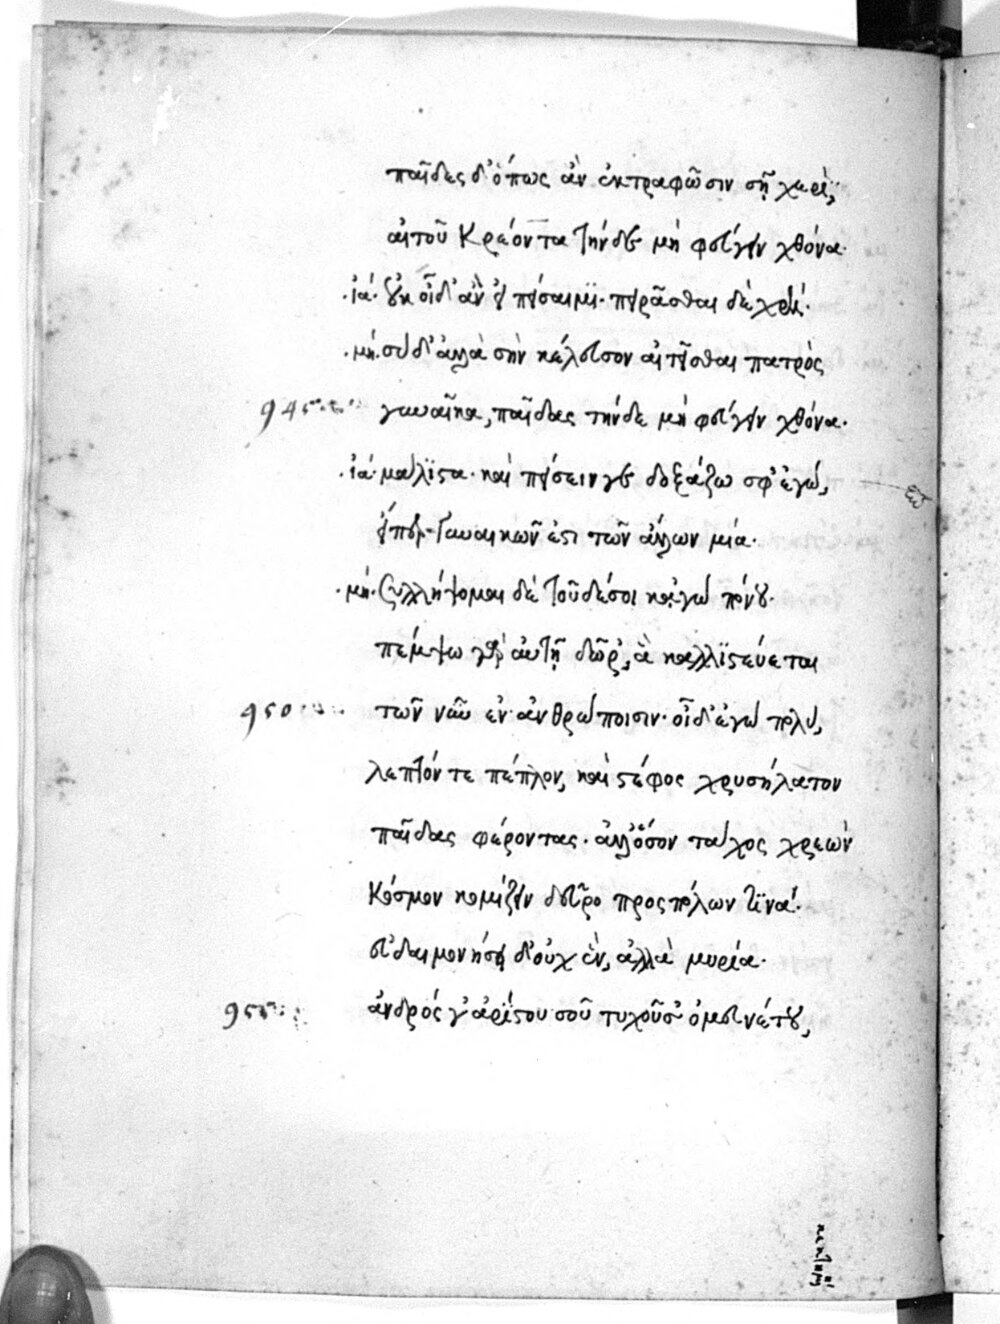 παῖδες δ' ὅπως ἂν ἐκτραφῶσιν σῇ χερὶ,
αἰτοῦ Κρέοντα τήνδε μὴ φεύγειν χθόνα·
·ἰά· οὐκ οἶδ' ἂν εἰ πείσαιμι· πειρᾶσθαι δὲ χρή·
·μή· σὺ δ' ἀλλὰ σὴν κέλευσον αἰτεῖσθαι πατρὸς
945 γυναῖκα, παῖδας τήνδε μὴ φεύγειν χθόνα·
·ἰά· μάλιστα· καὶ πείσειν γε δοξάζω σφ' ἐγώ,
εἴπερ γυναικῶν ἐστι τῶν ἄλλων μία·
·μή· ξυλλήψομαι δὲ τοῦδέ σοι κἀγὼ πόνου·
πέμψω γὰρ αὐτῇ δῶρ', ἃ καλλιστεύεται
950 τῶν νῦν ἐν ἀνθρώποισιν· οἶδ' ἐγὼ πολύ,
λεπτόν τε πέπλον, καὶ στέφος χρυσήλατον
παῖδας φέροντας· ἀλλ' ὅσον τάχος χρεὼν
Κόσμον κομίζειν δεῦρο προσπόλων τινά·
εὐδαιμονήσει δ' οὐχ ἓν, ἀλλὰ μυρία·
955 ἀνδρός γ' ἀρίστου σοῦ τυχοῦσ' ὁμευνέτου,